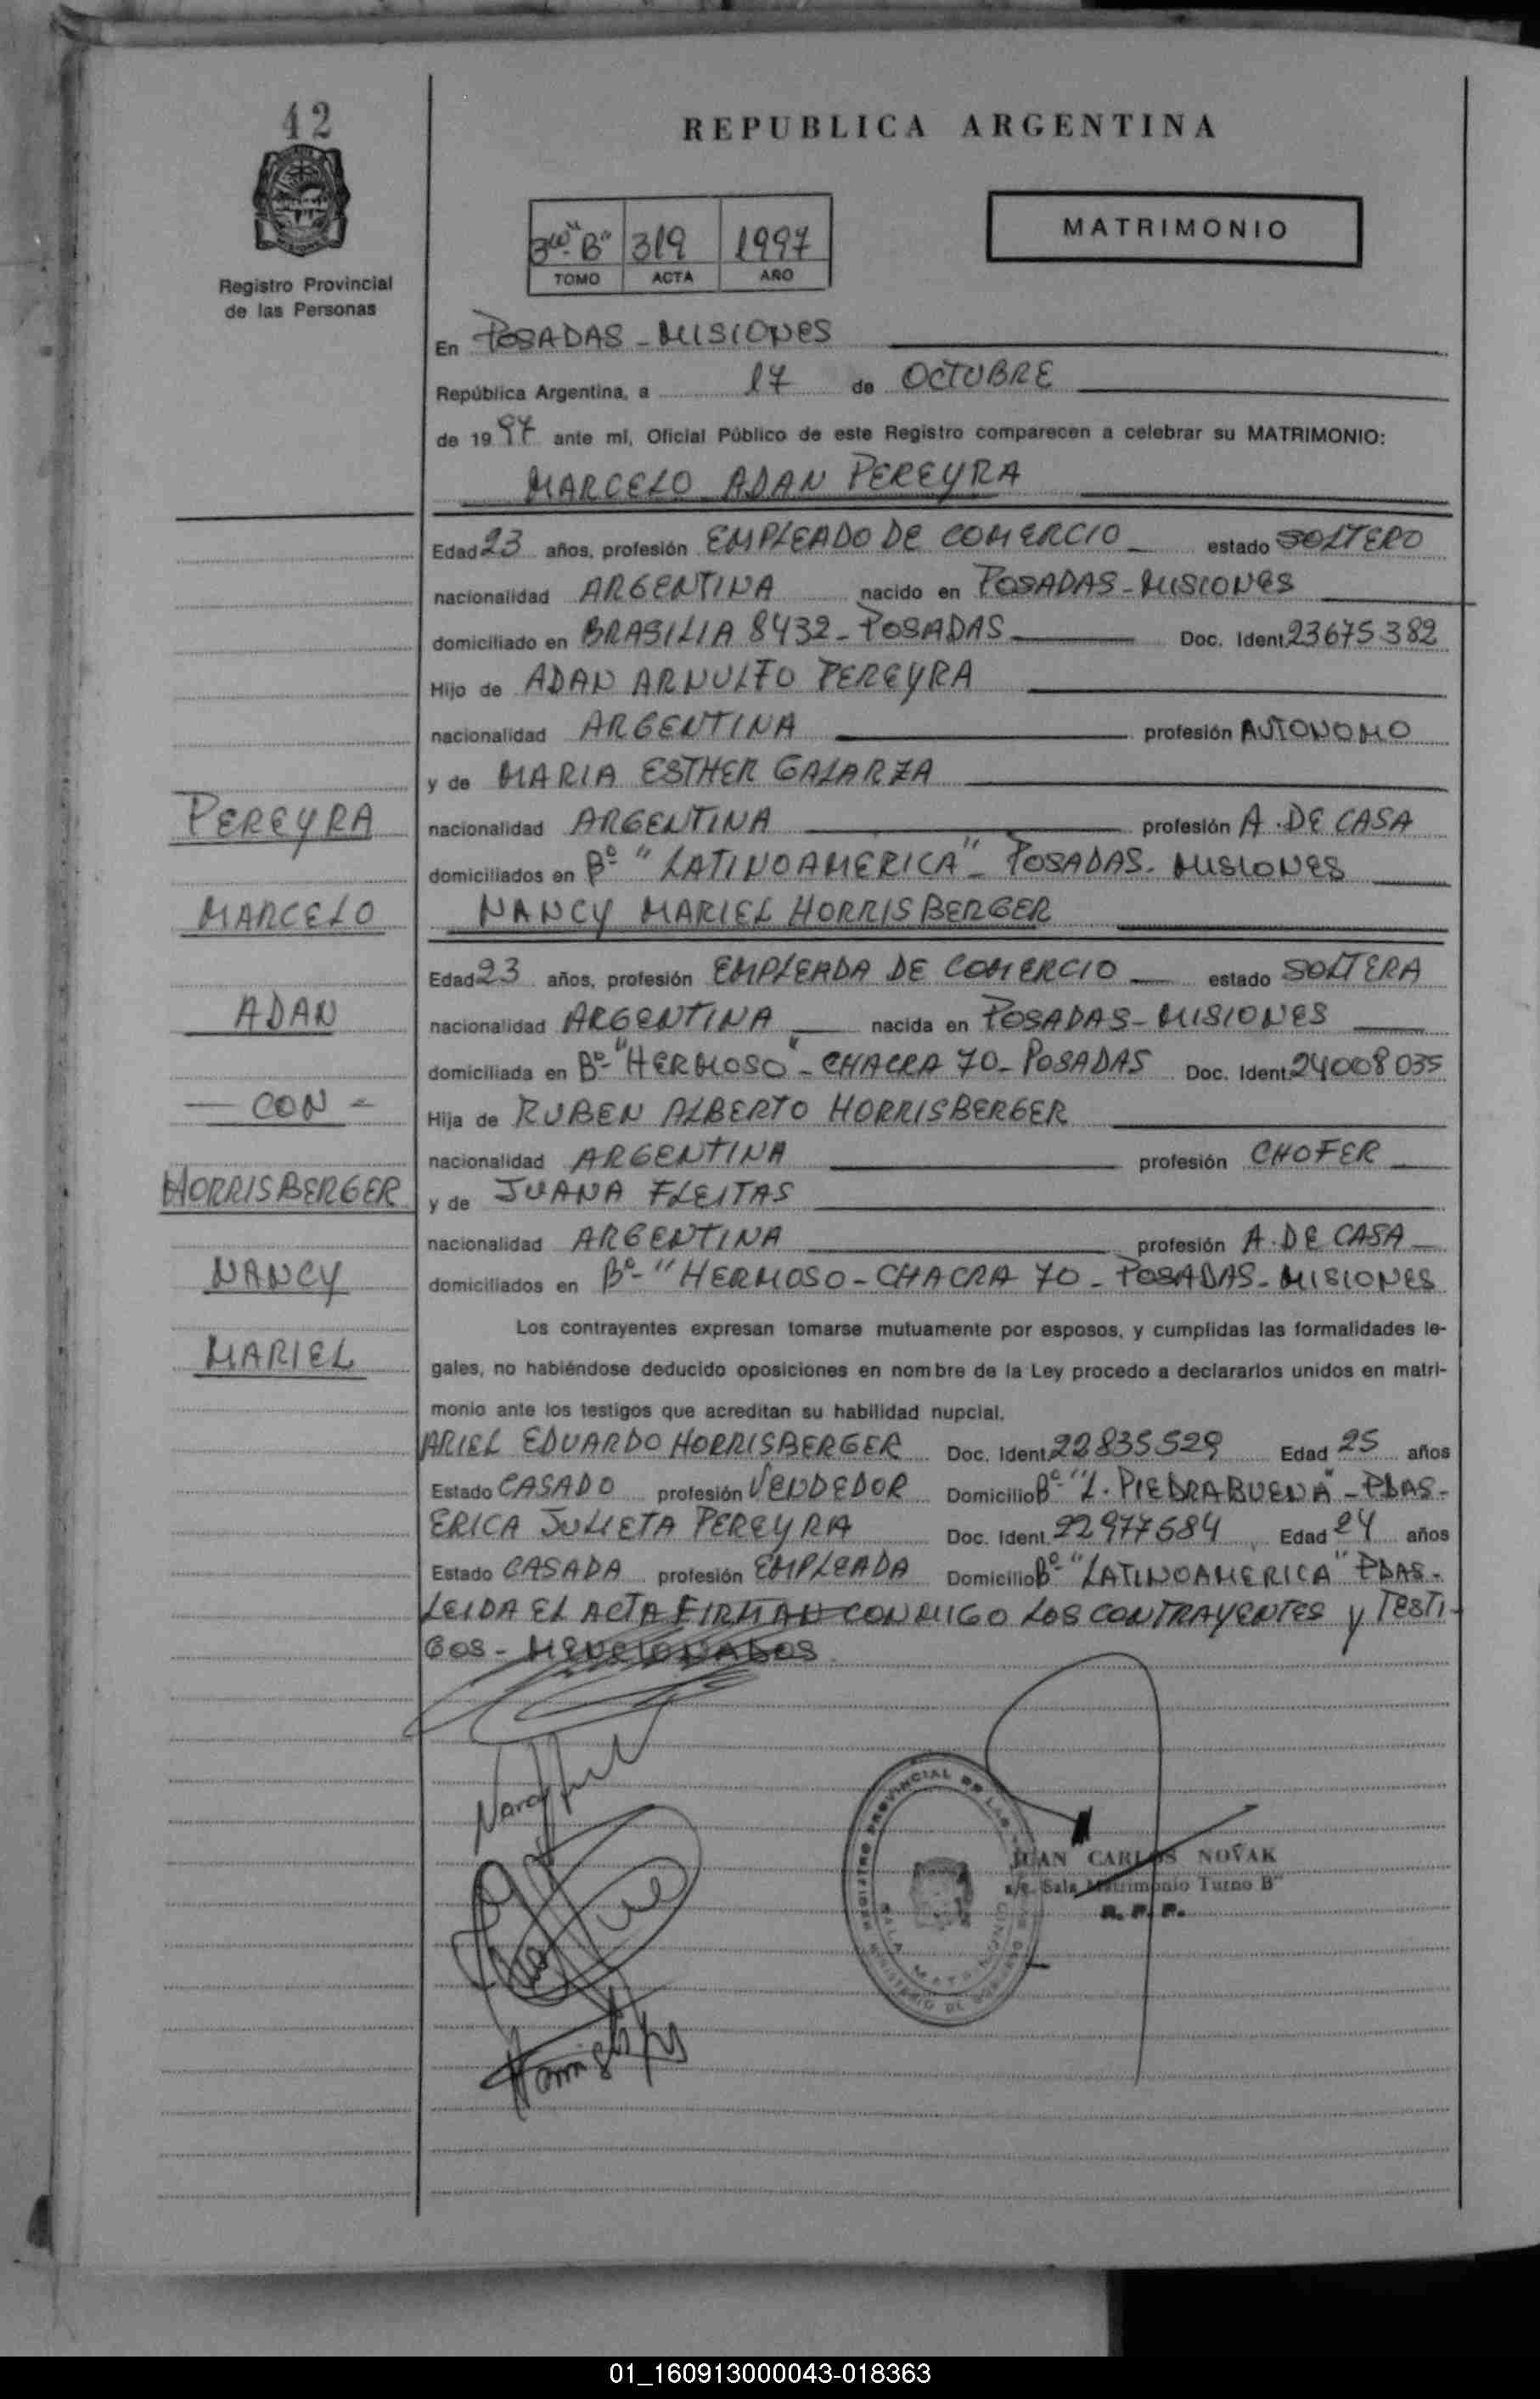 42
REPUBLICA ARGENTINA
Registro Provincial
de las Personas
3ro "B" 319 1997
TOMO ACTA AÑO
MATRIMONIO
En POSADAS - MISIONES
República Argentina, a 17 de OCTUBRE
de 1997 ante mí, Oficial Público de este Registro comparecen a celebrar su MATRIMONIO:
MARCELO ADAN PEREYRA
Edad 23 años, profesión EMPLEADO DE COMERCIO estado SOLTERO
nacionalidad ARGENTINA nacido en POSADAS - MISIONES
domiciliado en BRASILIA 8432 - POSADAS Doc. Ident. 23675382
Hijo de ADAN ARNULFO PEREYRA
nacionalidad ARGENTINA profesión AUTONOMO
y de MARIA ESTHER GALARZA
nacionalidad ARGENTINA profesión A. DE CASA
domiciliados en Bº "LATINOAMERICA" - POSADAS - MISIONES
NANCY MARIEL HORRISBERGER
Edad 23 años, profesión EMPLEADA DE COMERCIO estado SOLTERA
nacionalidad ARGENTINA nacida en POSADAS - MISIONES
domiciliada en Bº "HERMOSO" - CHACRA 70 - POSADAS Doc. Ident. 24008035
Hija de RUBEN ALBERTO HORRISBERGER
nacionalidad ARGENTINA profesión CHOFER
y de JUANA FLEITAS
nacionalidad ARGENTINA profesión A. DE CASA
domiciliados en Bº - "HERMOSO - CHACRA 70 - POSADAS - MISIONES
PEREYRA
MARCELO
ADAN
- CON -
HORRISBERGER
NANCY
MARIEL
Los contrayentes expresan tomarse mutuamente por esposos, y cumplidas las formalidades le-
gales, no habiéndose deducido oposiciones en nombre de la Ley procedo a declararlos unidos en matri-
monio ante los testigos que acreditan su habilidad nupcial.
ARIEL EDUARDO HORRISBERGER Doc. Ident. 22835529 Edad 25 años
Estado CASADO profesión VENDEDOR Domicilio Bº "L. PIEDRABUENA" - PDAS -
ERICA JULIETA PEREYRA Doc. Ident. 22977684 Edad 24 años
Estado CASADA profesión EMPLEADA Domicilio Bº "LATINOAMERICA" PDAS -
LEIDA EL ACTA FIRMAN CONMIGO LOS CONTRAYENTES Y TESTI-
GOS - MENCIONADOS
Nancy
REGISTRO PROVINCIAL DE LAS
SALA MATRIMONIO
MINISTERIO DE GOBIERNO
JUAN CARLOS NOVAK
a/c. Sala Matrimonio Turno B"
R. P. P.
01_160913000043-018363